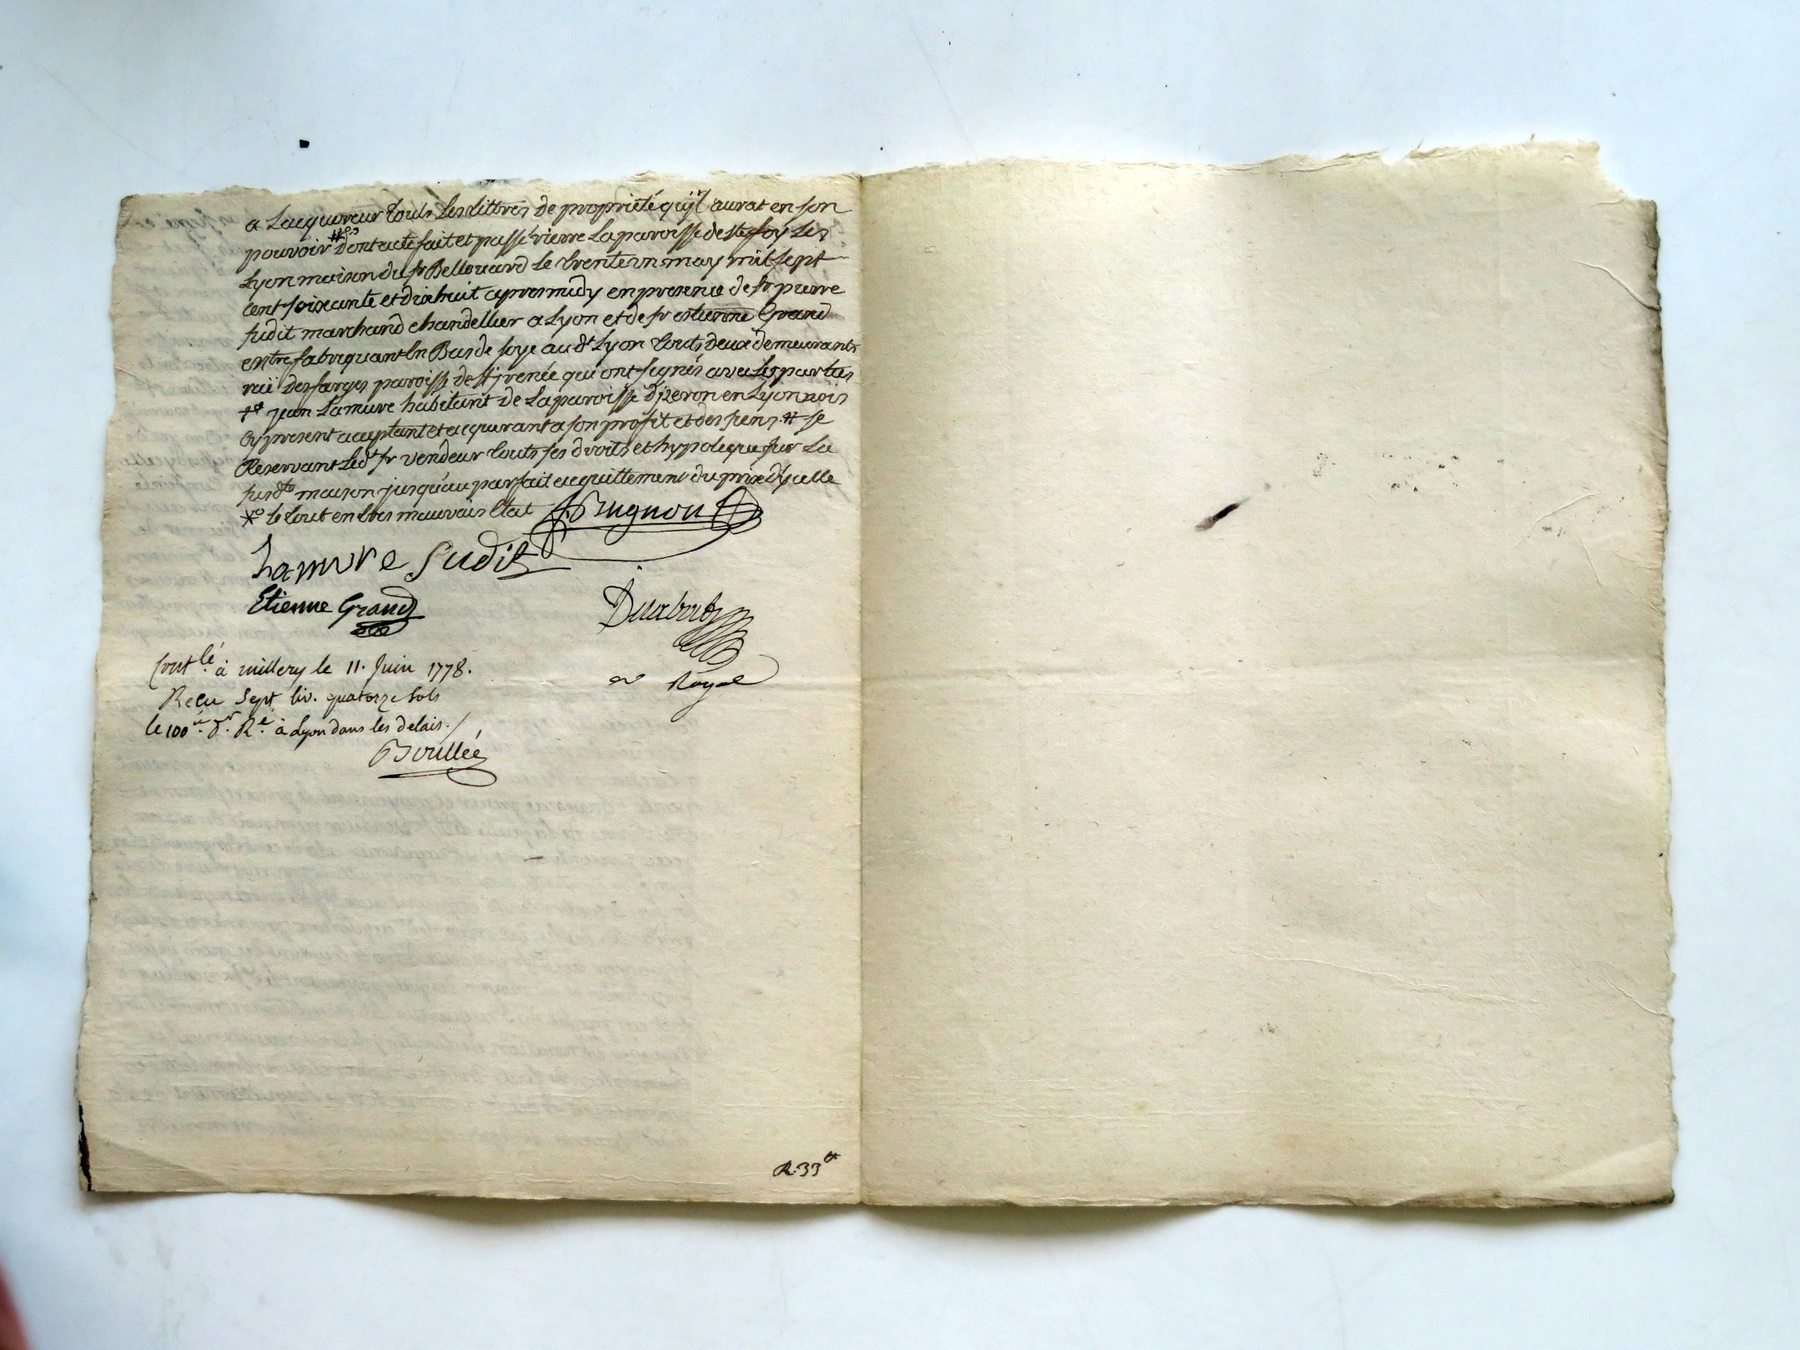 a Lacquereur touts Les tittres de proprieté quijl aurat en son
pouvoir dont acte fait et passé rierre La paroisse de ste foy Les
Lyon maison du sr Bellouard Le trente un may mil sept
cent soixante et dixhuit apres midy en presence de sr pierre
sudit marchand chandellier a Lyon et de sr estienne Grand
entre fabriquant en Bas de soye au dt Lyon touts deux demeurants
rüe Desfarges paroisse de st jrenée qui ont signés avec Les parties
jean Lamure habitant de La paroisse Djzeron en Lyonnois
cy present acceptant et acquerant a son proffit et des siens # se
Reservant Ledt sr vendeur touts ses droits et hypoteque sur La
susdte maison jusqu'au parfait acquittement du prix Djcelle
le tout en tres mauvais Etat
Lamure Sudit
Etienne Grand
Contlé à millery le 11. Juin 1778.
Recu Sept liv. quatorze sols
le 100e dr. Ré à Lyon dans les delais.
Boullée
Royal
R. 33